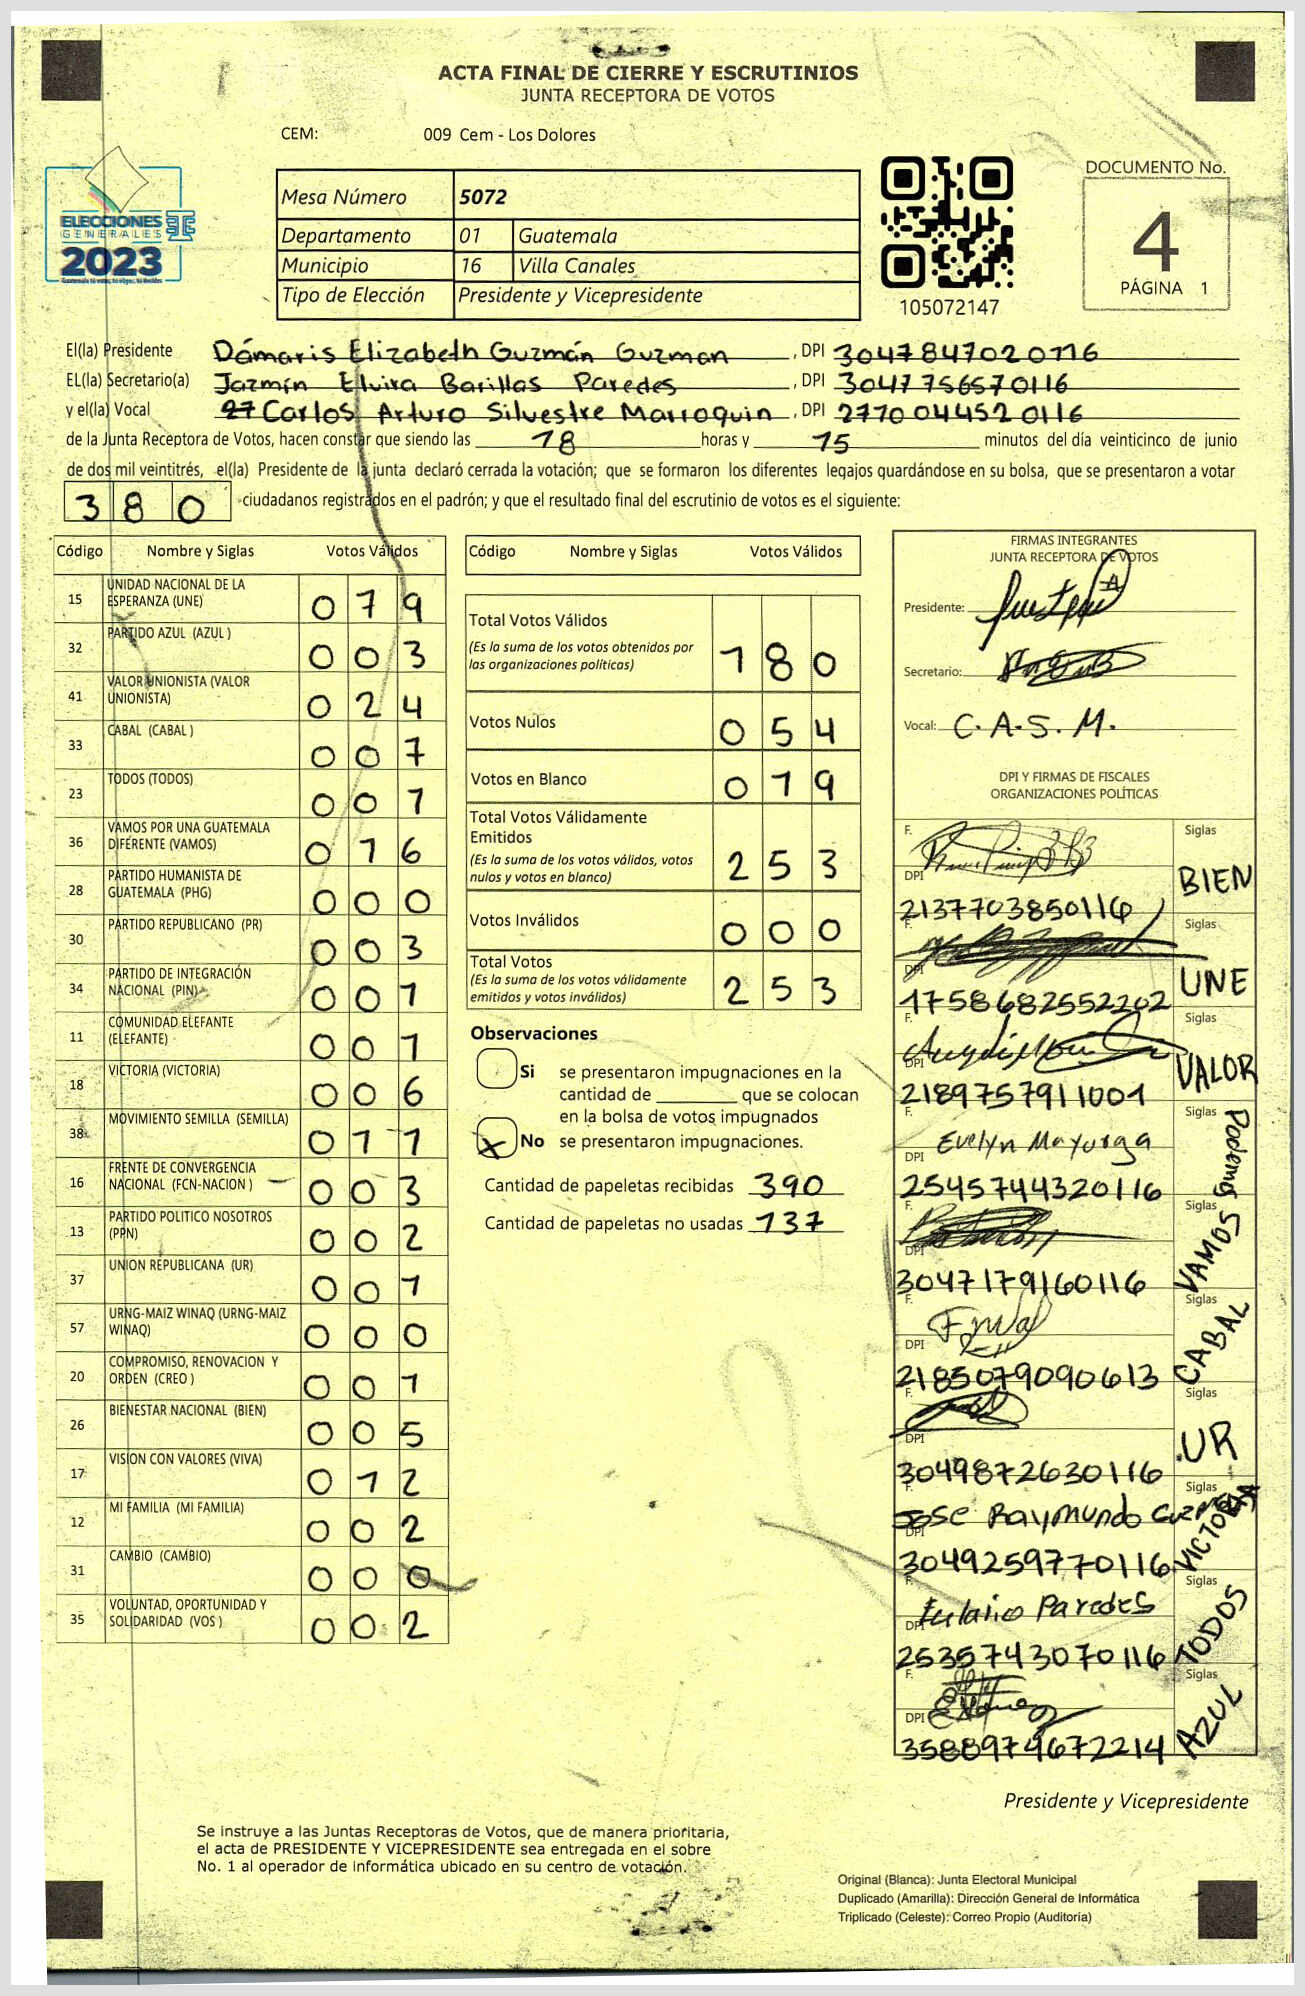 ACTA FINAL DE CIERRE Y ESCRUTINIOS
JUNTA RECEPTORA DE VOTOS
CEM: 009 Cem - Los Dolores
ELECCIONES
GENERALES
2023
Mesa Número 5072
Departamento 01 Guatemala
Municipio 16 Villa Canales
Tipo de Elección Presidente y Vicepresidente
105072147
DOCUMENTO No.
4
PÁGINA 1
El(la) Presidente Dámaris Elizabeth Guzmán Guzman, DPI 3047847020116
EL(la) Secretario(a) Jazmín Elvira Barillas Paredes, DPI 3047756570116
y el(la) Vocal Carlos Arturo Silvestre Marroquin, DPI 2770044520116
de la Junta Receptora de Votos, hacen constar que siendo las 18 horas y 15 minutos del día veinticinco de junio
de dos mil veintitrés, el(la) Presidente de la junta declaró cerrada la votación; que se formaron los diferentes legajos quardándose en su bolsa, que se presentaron a votar
380 ciudadanos registrados en el padrón; y que el resultado final del escrutinio de votos es el siguiente:
Código Nombre y Siglas Votos Válidos
15 UNIDAD NACIONAL DE LA ESPERANZA (UNE) 079
32 PARTIDO AZUL (AZUL ) 003
41 VALOR UNIONISTA (VALOR UNIONISTA) 024
33 CABAL (CABAL ) 007
23 TODOS (TODOS) 001
36 VAMOS POR UNA GUATEMALA DIFERENTE (VAMOS) 016
28 PARTIDO HUMANISTA DE GUATEMALA (PHG) 000
30 PARTIDO REPUBLICANO (PR) 003
34 PARTIDO DE INTEGRACIÓN NACIONAL (PIN) 001
11 COMUNIDAD ELEFANTE (ELEFANTE) 001
18 VICTORIA (VICTORIA) 006
38 MOVIMIENTO SEMILLA (SEMILLA) 011
16 FRENTE DE CONVERGENCIA NACIONAL (FCN-NACION ) 003
13 PARTIDO POLITICO NOSOTROS (PPN) 002
37 UNION REPUBLICANA (UR) 001
57 URNG-MAIZ WINAQ (URNG-MAIZ WINAQ) 000
20 COMPROMISO, RENOVACION Y ORDEN (CREO ) 001
26 BIENESTAR NACIONAL (BIEN) 005
17 VISION CON VALORES (VIVA) 012
12 MI FAMILIA (MI FAMILIA) 002
31 CAMBIO (CAMBIO) 000
35 VOLUNTAD, OPORTUNIDAD Y SOLIDARIDAD (VOS ) 002
Código Nombre y Siglas Votos Válidos
Total Votos Válidos
(Es la suma de los votos obtenidos por
las organizaciones políticas) 180
Votos Nulos 054
Votos en Blanco 019
Total Votos Válidamente
Emitidos
(Es la suma de los votos válidos, votos
nulos y votos en blanco) 253
Votos Inválidos 000
Total Votos
(Es la suma de los votos válidamente
emitidos y votos inválidos) 253
Observaciones
Si se presentaron impugnaciones en la
cantidad de ________ que se colocan
en la bolsa de votos impugnados
X No se presentaron impugnaciones.
Cantidad de papeletas recibidas 390
Cantidad de papeletas no usadas 137
FIRMAS INTEGRANTES
JUNTA RECEPTORA DE VOTOS
Presidente:
Secretario:
Vocal: C.A.S.M.
DPI Y FIRMAS DE FISCALES
ORGANIZACIONES POLÍTICAS
F. Siglas
DPI BIEN
2137703850116
F. Siglas
DPI UNE
1758682552202
F. Siglas
DPI VALOR
2189757911001
F. Siglas
Evelyn Mayorga Podemos
DPI
2545744320116
F. Siglas
DPI VAMOS
3047179160116
F. Siglas
DPI CABAL
2185079090613
F. Siglas
DPI UR
3049872630116
F. Siglas
Jose Raymundo VICTORIA
DPI
3049259770116
F. Siglas
Paredes TODOS
DPI
2535743070116
F. Siglas
DPI AZUL
3588974672214
Presidente y Vicepresidente
Se instruye a las Juntas Receptoras de Votos, que de manera prioritaria,
el acta de PRESIDENTE Y VICEPRESIDENTE sea entregada en el sobre
No. 1 al operador de informática ubicado en su centro de votación.
Original (Blanca): Junta Electoral Municipal
Duplicado (Amarilla): Dirección General de Informática
Triplicado (Celeste): Correo Propio (Auditoría)